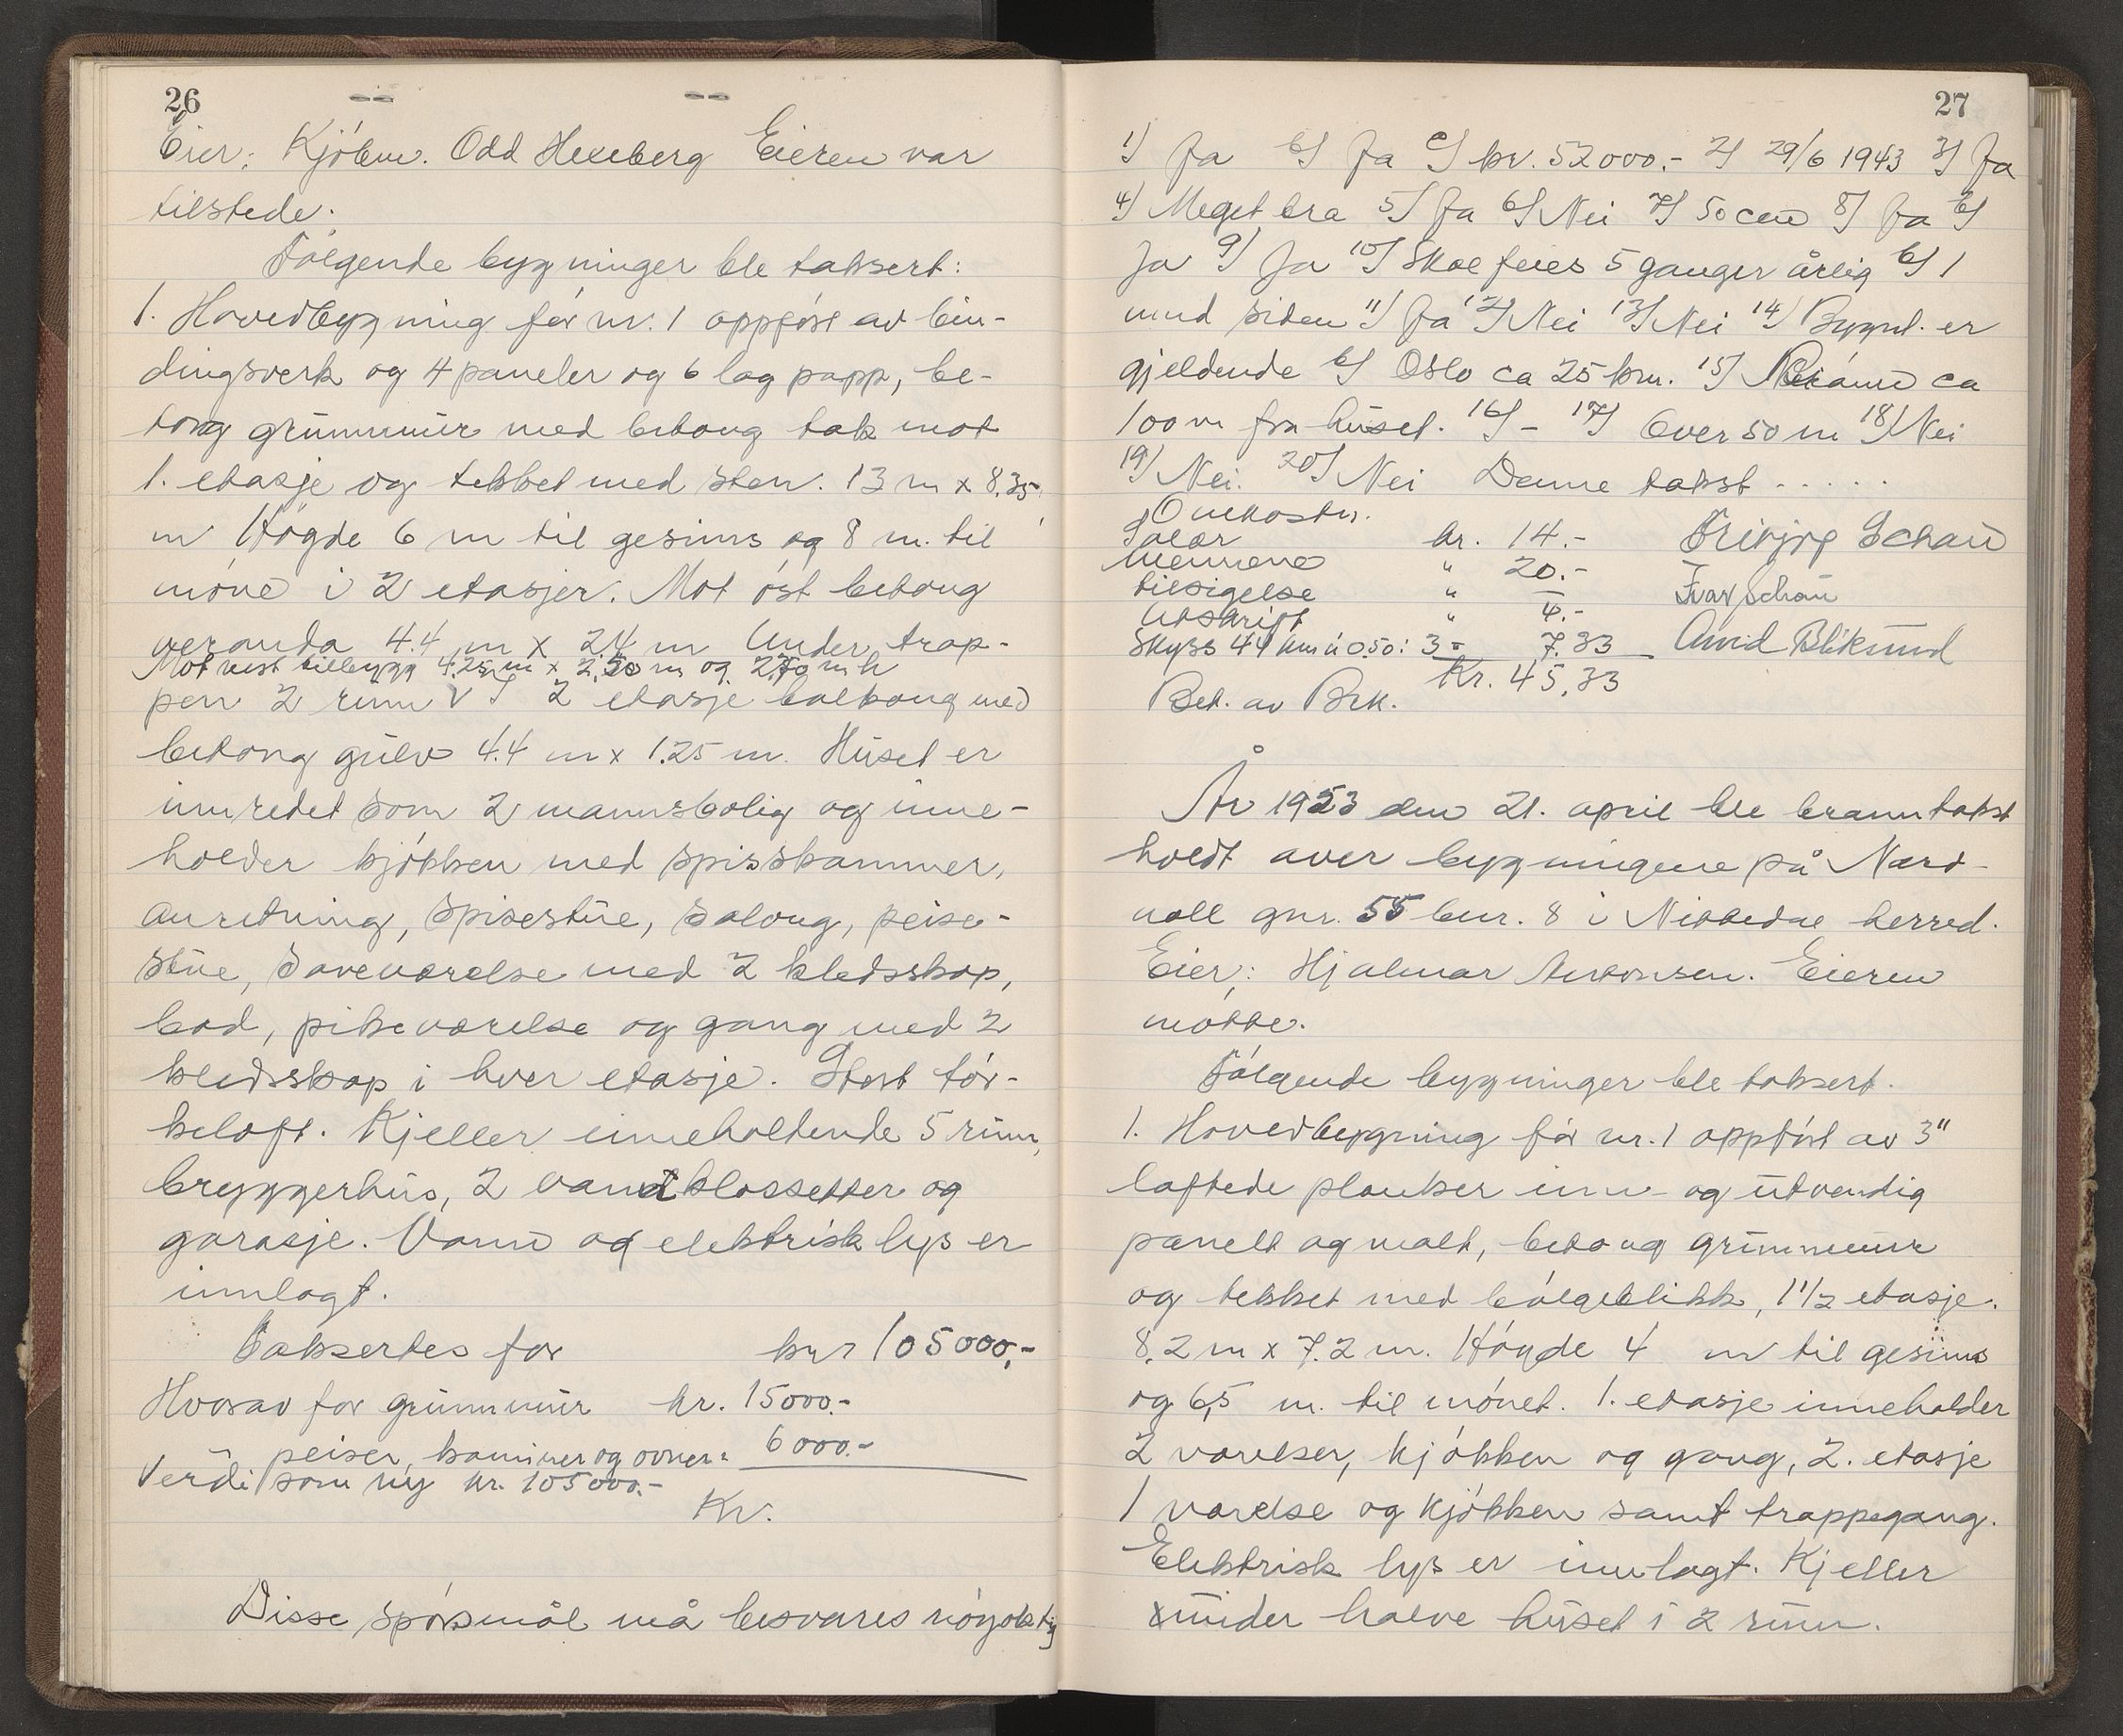 26
Eier: Kjöbm. Odd Hexeberg Eieren var
tilstede.
Følgende bygninger ble taksert:
1. Hovedbygning før nr. 1 oppført av bin-
dingsverk og 4 paneler og 6 lag papp, be-
tong grunnmur med betong tak mot
1. etasje og tekket med sten. 13 m x 8.35
m Høgde 6 m til gesims og 8 m. til
møne i 2 etasjer. Mot øst betong
veranda 4.4 m x 2.4 m Under trap-
Mot vest tilbygg 4.25 m x 2.50 m og 2.70 m h
pen 2 rum V I 2 etasje balkong med
betong gulv 4.4 m x 1.25 m. Huset er
innredet som 2 mannsbolig og inne-
holder kjøkken med spisskammer,
anretning, spisestue, salong, peise-
stue, soveværelse med 2 kledsskap,
bad, pikeværelse og gang med 2
kledsskap i hver etasje. Stort tør-
keloft. Kjeller inneholdende 5 rum,
bryggerhus, 2 vandklossetter og
garasje. Vann og elektrisk lys er
innlagt.
Taksertes for kr. 105000,-
Hvorav for grunnmur kr. 15000.-
peiser, kaminer og ovner " 6000.-
Verdi som ny kr. 105000.-
Kr.
Disse spørsmål må besvares nøyaktig
27
1) Ja b) Ja c) kr. 52000.- 2) 29/6 1943 3) Ja
4) Meget bra 5) Ja 6) Nei 7) 50 cm 8) Ja b)
Ja 9) Ja 10) Skal feies 5 ganger årlig b) 1
mnd siden 11) Ja 12) Nei 13) Nei 14) Bygnl. er
gjeldende b) Oslo ca 25 km. 15) ca
100 m fra huset. 16) - 17) Over 50 m 18) Nei
19) Nei. 20) Nei Denne takst .....
Omkostn.
Salær kr. 14.- Schau
Mennene " 20.- Ivar Schau
tilsigelse " —
Utskrift " 4.- Arvid Bliksrud
Skyss 44 km à 0.50: 3 = 7.33
Kr. 45,33
Bet. av Brk.
År 1953 den 21. april ble branntakst
holdt over bygningene på Nord-
voll gnr. 55 bnr. 8 i Nittedal herred.
Eier: Hjalmar Antonsen. Eieren
møtte.
Følgende bygninger ble taksert.
1. Hovedbygning før nr. 1 oppført av 3"
laftede planker inn- og utvendig
panelt og malt, betong grunnmur
og tekket med bølgeblikk, 1 1/2 etasje.
8.2 m x 7.2 m. Høgde 4 m til gesims
og 6,5 m. til mønet. 1. etasje inneholder
2 værelser, kjøkken og gang, 2. etasje
1 værelse og kjøkken samt trappegang.
Elektrisk lys er innlagt. Kjeller
under halve huset i 2 rum.